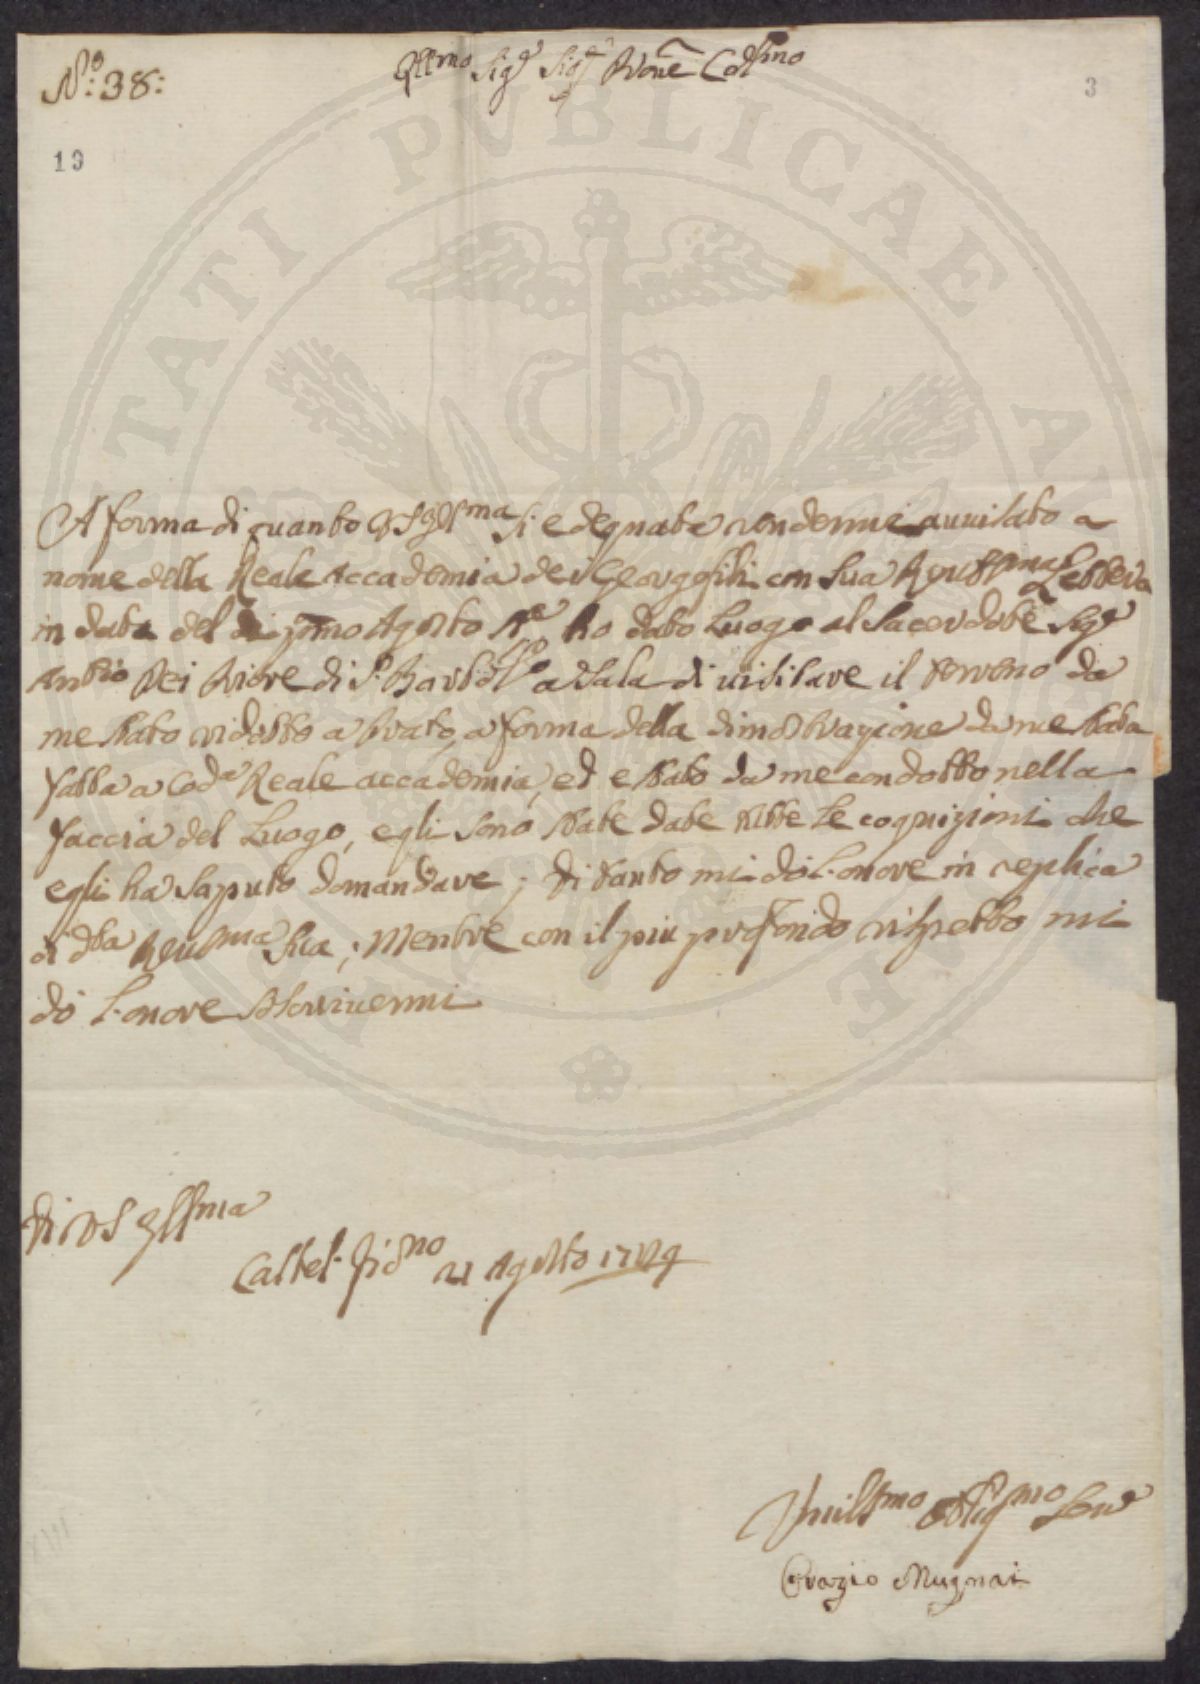 N.o 38:
Illmo Sigr Sigr Prone Colmo
3
19
PROSPERITATI PUBLICAE AUGENDAE
A forma di quanto VS Illma si e degnata rendermi avvisato a
nome della Reale Accademia dei Georgofili con sua Reverma Lettera
in data del di primo Agosto ho dato Luogo al Sacerdote Sigr
Antio Dei Priore di S. Bartol. a Sala di visitare il terreno da
me stato ridotto a prato, a forma della dimostrazione da me stata
fatta a Coda Reale accademia, ed e stato da me condotto nella
faccia del Luogo, e gli sono state date tutte Le cognizioni che
egli ha saputo domandare; di tanto mi do l'onore in replica
a dta Reverma sua; Mentre con il piu profondo rispetto mi
do L'onore soscrivermi
Di VS Illma
Castel. Fiorno 21 Agosto 1789
Umilismo obligmo Serve
Orazio Mugnai